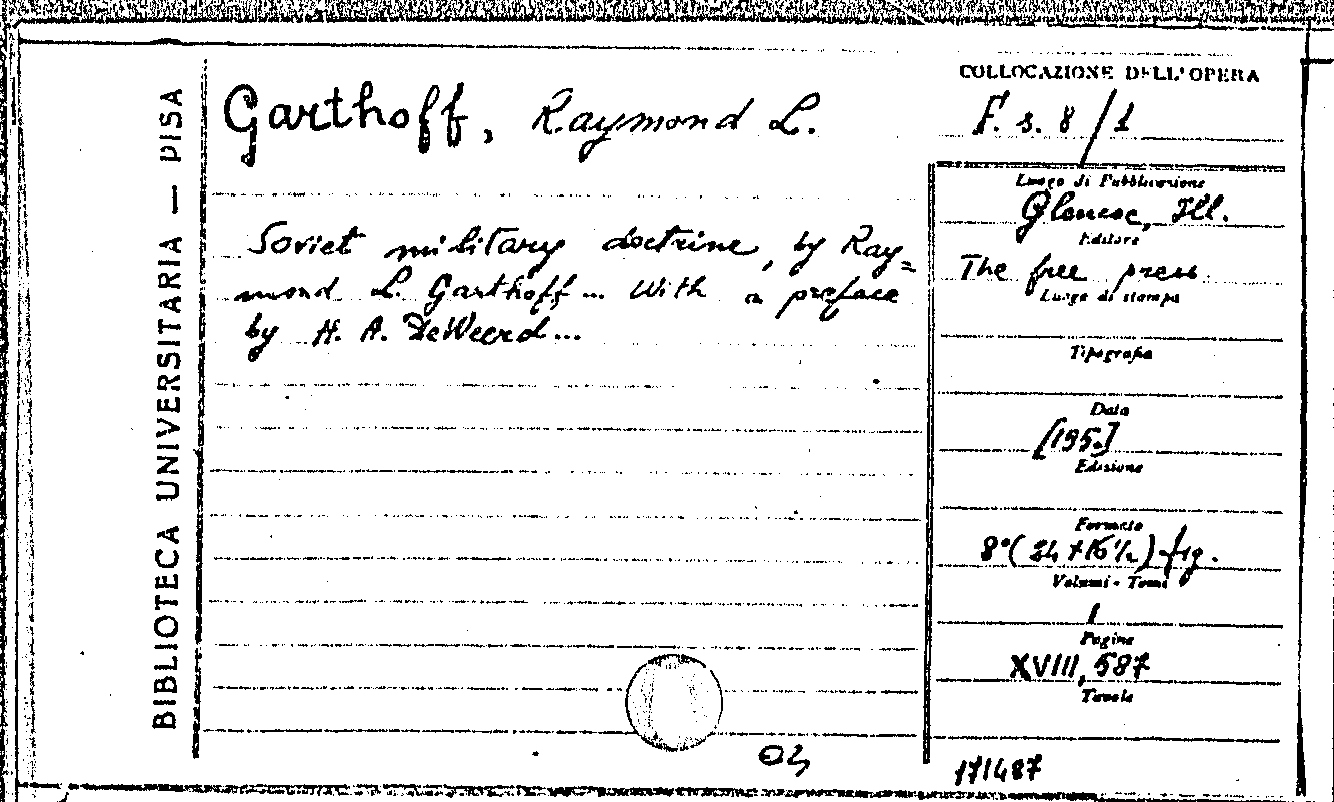 BIBLIOTECA UNIVERSITARIA — PISA
Garthoff, Raymond L.
Soviet military doctrine, by Ray=
mond L. Garthoff... With a preface
by H. A. DeWeerd...
COLLOCAZIONE DELL'OPERA
F. s. 8/1
Luogo di Pubblicazione
Glencoe, Ill.
Editore
The free press.
Luogo di stampa
Tipografia
Data
[195.]
Edizione
Formato
8° (24 + 16 1/2) fig.
Volumi - Tomi
1
Pagine
XVIII, 587
Tavole
171487